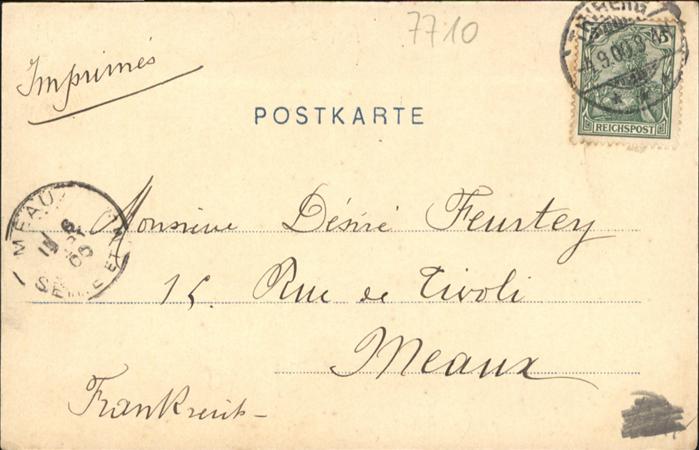 7710
Imprimés
4.9.00.
REICHSPOST
POSTKARTE
MEAUX
SEINE ET M
Monsieur Désiré Feurtey
15. Rue de Tivoli
Meaux
Frankreich